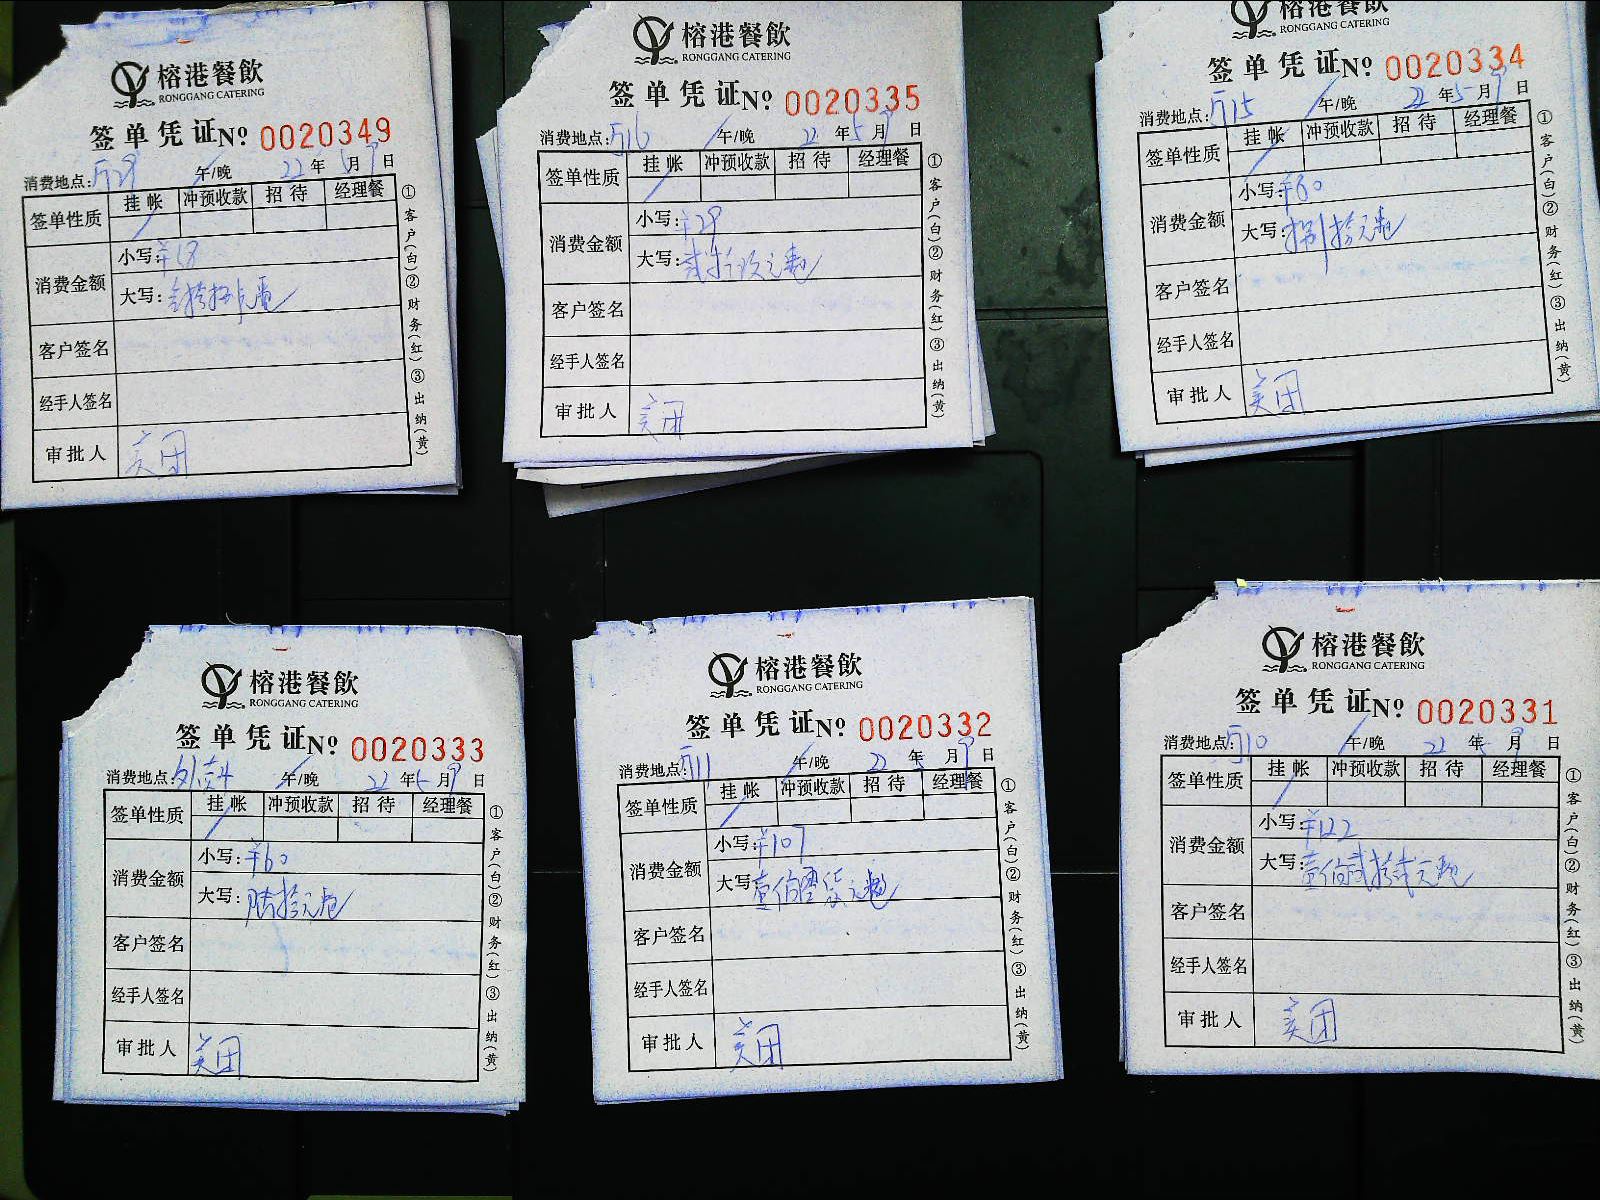 榕港餐飲
RONGGANG CATERING
签单凭证 № 0020349
消费地点: 午/晚 22年5月9日
签单性质 挂帐 冲预收款 招待 经理餐
消费金额 小写:¥18
大写:
客户签名
经手人签名
审批人 美团
①客户(白)②财务(红)③出纳(黄)
榕港餐飲
RONGGANG CATERING
签单凭证 № 0020335
消费地点: 午/晚 22年5月9日
签单性质 挂帐 冲预收款 招待 经理餐
消费金额 小写:¥29
大写:贰拾玖元整
客户签名
经手人签名
审批人 美团
①客户(白)②财务(红)③出纳(黄)
榕港餐飲
RONGGANG CATERING
签单凭证 № 0020334
消费地点: 午/晚 22年5月9日
签单性质 挂帐 冲预收款 招待 经理餐
消费金额 小写:
大写:捌拾元整
客户签名
经手人签名
审批人 美团
①客户(白)②财务(红)③出纳(黄)
榕港餐飲
RONGGANG CATERING
签单凭证 № 0020333
消费地点:外卖 午/晚 22年5月9日
签单性质 挂帐 冲预收款 招待 经理餐
消费金额 小写:¥60
大写:陆拾元整
客户签名
经手人签名
审批人 美团
①客户(白)②财务(红)③出纳(黄)
榕港餐飲
RONGGANG CATERING
签单凭证 № 0020332
消费地点: 午/晚 22年5月9日
签单性质 挂帐 冲预收款 招待 经理餐
消费金额 小写:¥107
大写:壹佰零柒元整
客户签名
经手人签名
审批人 美团
①客户(白)②财务(红)③出纳(黄)
榕港餐飲
RONGGANG CATERING
签单凭证 № 0020331
消费地点: 午/晚 22年5月9日
签单性质 挂帐 冲预收款 招待 经理餐
消费金额 小写:¥122
大写:壹佰贰拾贰元整
客户签名
经手人签名
审批人 美团
①客户(白)②财务(红)③出纳(黄)